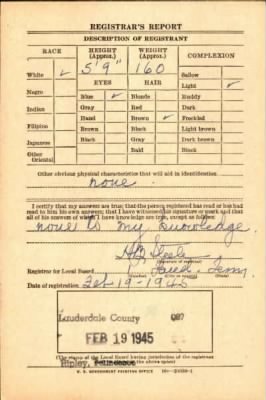 REGISTRAR'S REPORT
DESCRIPTION OF REGISTRANT
RACE
HEIGHT (Approx.)
WEIGHT (Approx.)
COMPLEXION
White ✓
5' 9"
160
Sallow
EYES
HAIR
Light ✓
Negro
Blue ✓
Blonde
Ruddy
Indian
Gray
Red
Dark
Hazel
Brown ✓
Freckled
Filipino
Brown
Black
Light brown
Japanese
Black
Gray
Dark brown
Other Oriental
Bald
Black
Other obvious physical characteristics that will aid in identification
none
I certify that my answers are true; that the person registered has read or has had read to him his own answers; that I have witnessed his signature or mark and that all of his answers of which I have knowledge are true, except as follows:
none to my knowledge
(Signature of registrar)
Registrar for Local Board
Date of registration Feb 19-1945
Lauderdale County 087
FEB 19 1945
(The stamp of the Local Board having jurisdiction of the registrant
Ripley, Tennessee
the above space)
U. S. GOVERNMENT PRINTING OFFICE